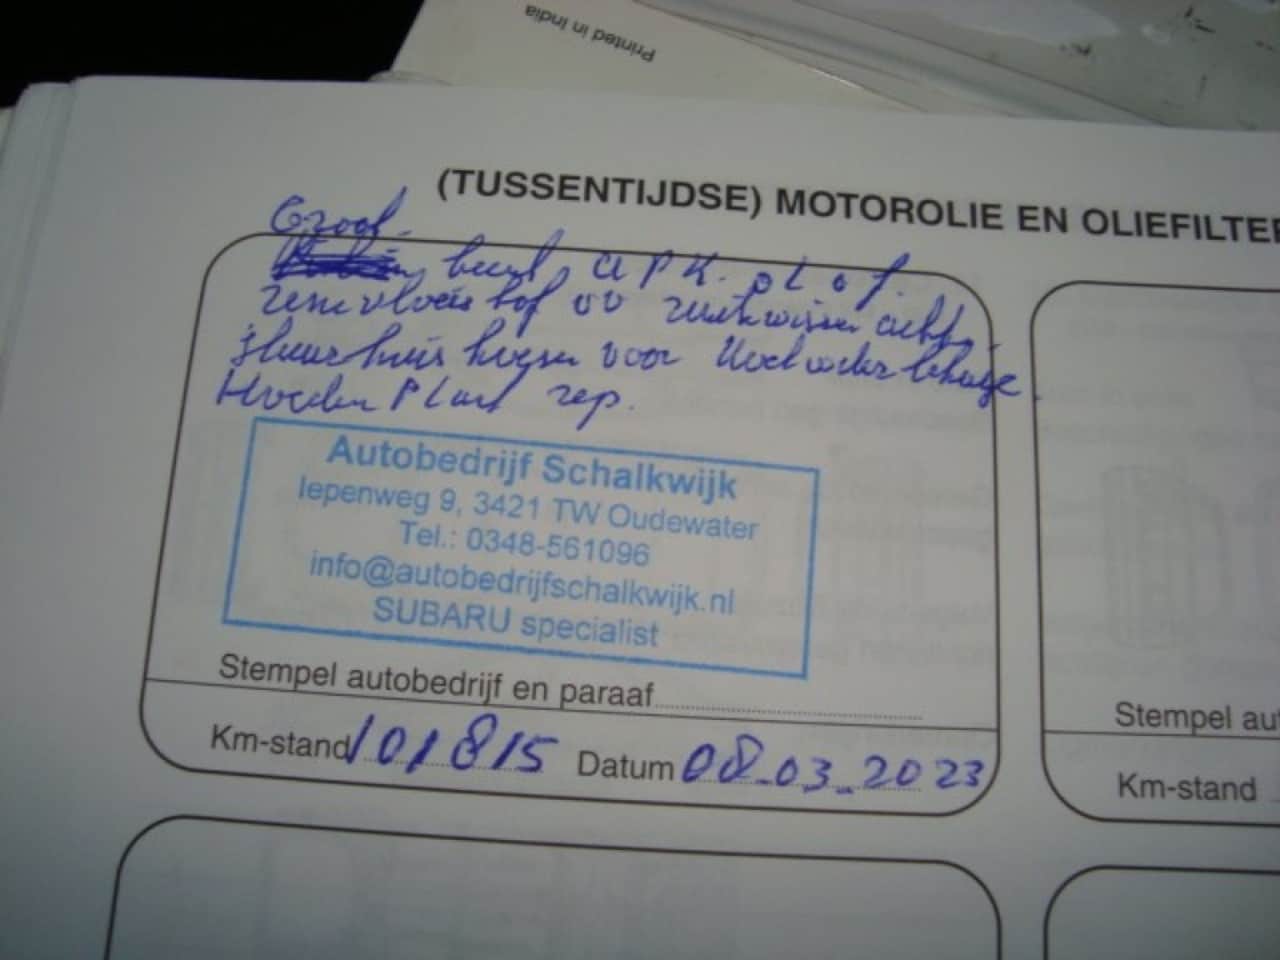 Printed in India
(TUSSENTIJDSE) MOTOROLIE EN OLIEFILTE
Groot
beurt, APK. ol of.
remvloeistof vv ruitwisser achter
stuurhuis hoezen voor Koelwater lekkage
Hoeden Plank rep.
Autobedrijf Schalkwijk
Iepenweg 9, 3421 TW Oudewater
Tel.: 0348-561096
info@autobedrijfschalkwijk.nl
SUBARU specialist
Stempel autobedrijf en paraaf
Km-stand 101815 Datum 08-03-2023
Stempel au
Km-stand